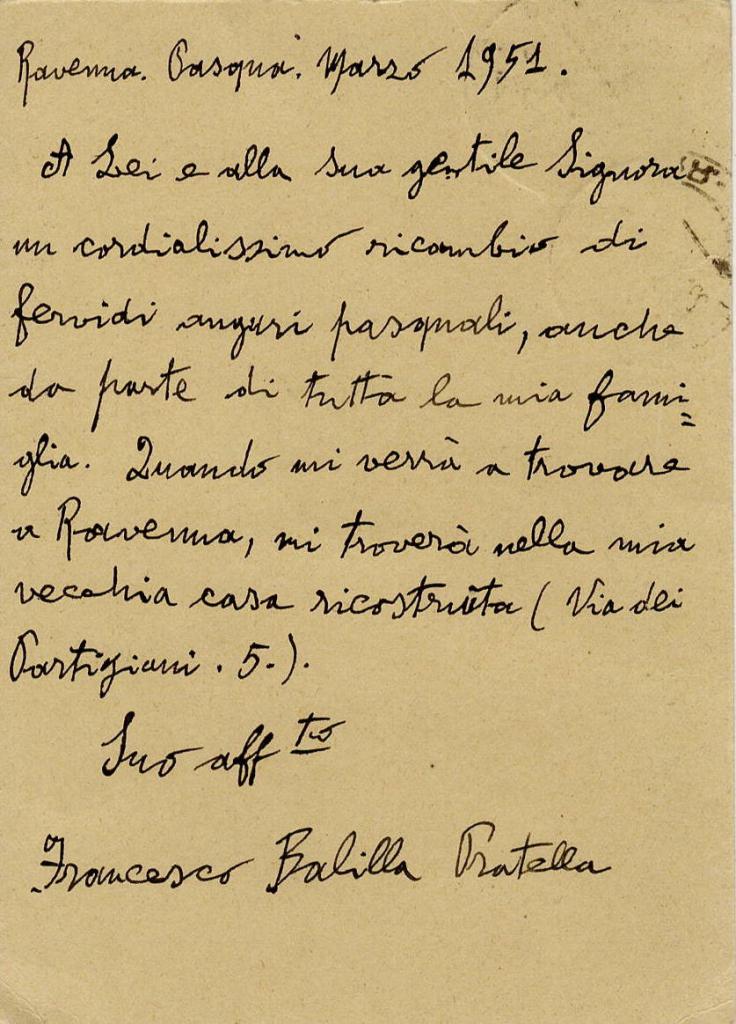 Ravenna. Pasqua. Marzo 1951.
A Lei e alla sua gentile Signora
un cordialissimo ricambio di
fervidi auguri pasquali, anche
da parte di tutta la mia fami=
glia. Quando mi verrà a trovare
a Ravenna, mi troverà nella mia
vecchia casa ricostruita (Via dei
Partigiani. 5.).
Suo aff to
Francesco Balilla Pratella